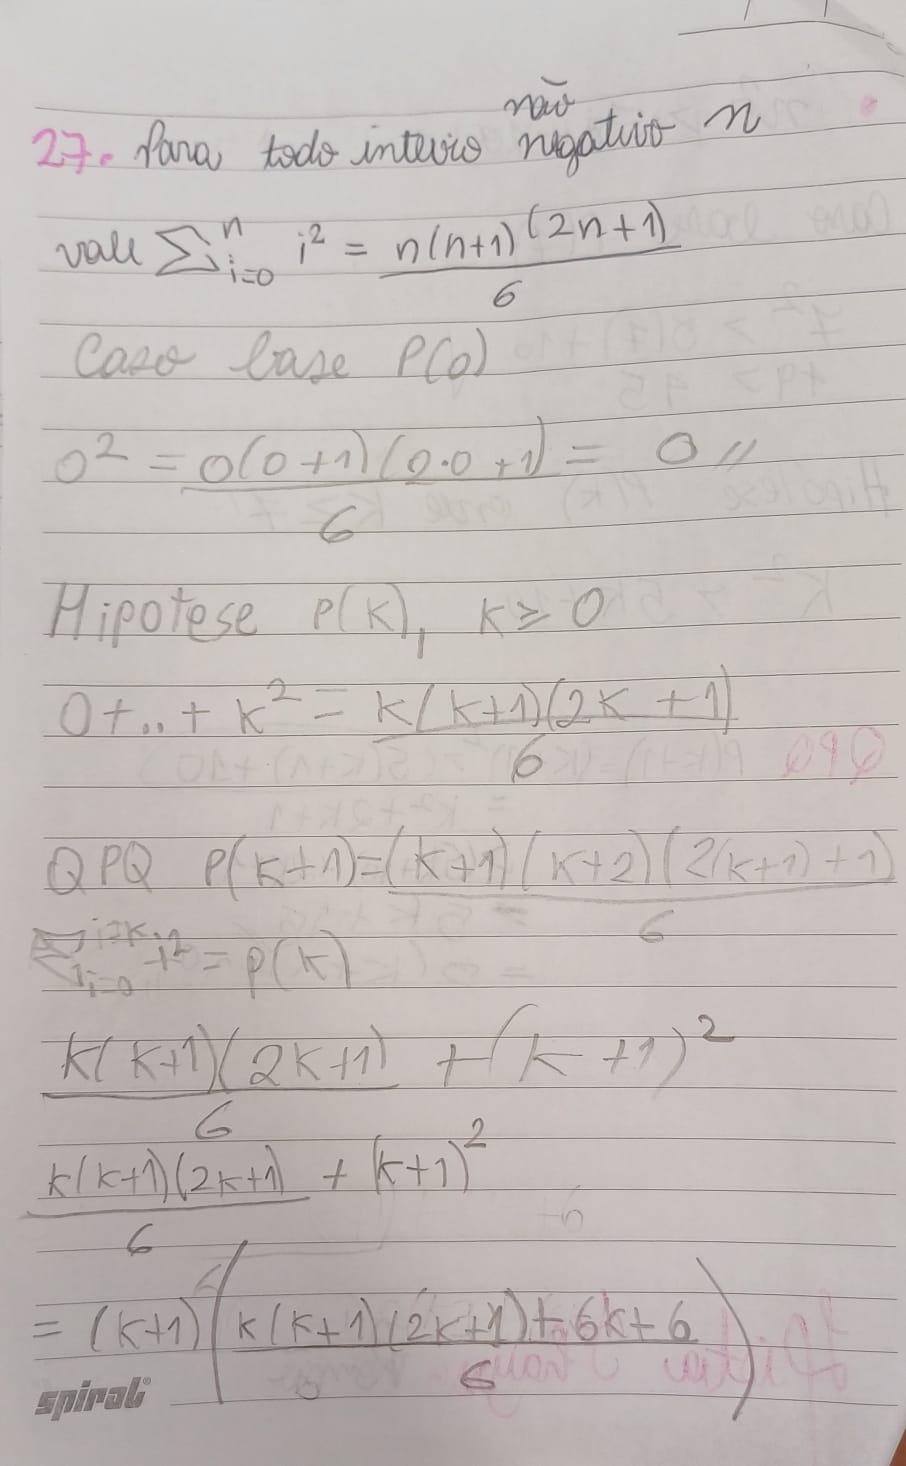 não
27. Para todo inteiro negativo n
vale ∑ⁿᵢ₌₀ i² = n(n+1)(2n+1)
6
Caso base P(0)
0² = 0(0+1)(2·0+1) = 0 //
6
Hipotese P(k), k ≥ 0
0+..+ k² = k(k+1)(2k+1)
6
QPQ P(k+1)=(k+1)(k+2)(2(k+1)+1)
6
= P(k)
k(k+1)(2k+1) + (k+1)²
6
k(k+1)(2k+1) + (k+1)²
6
= (k+1)(k(k+1)(2k+1)+6k+6)
6
spiral®